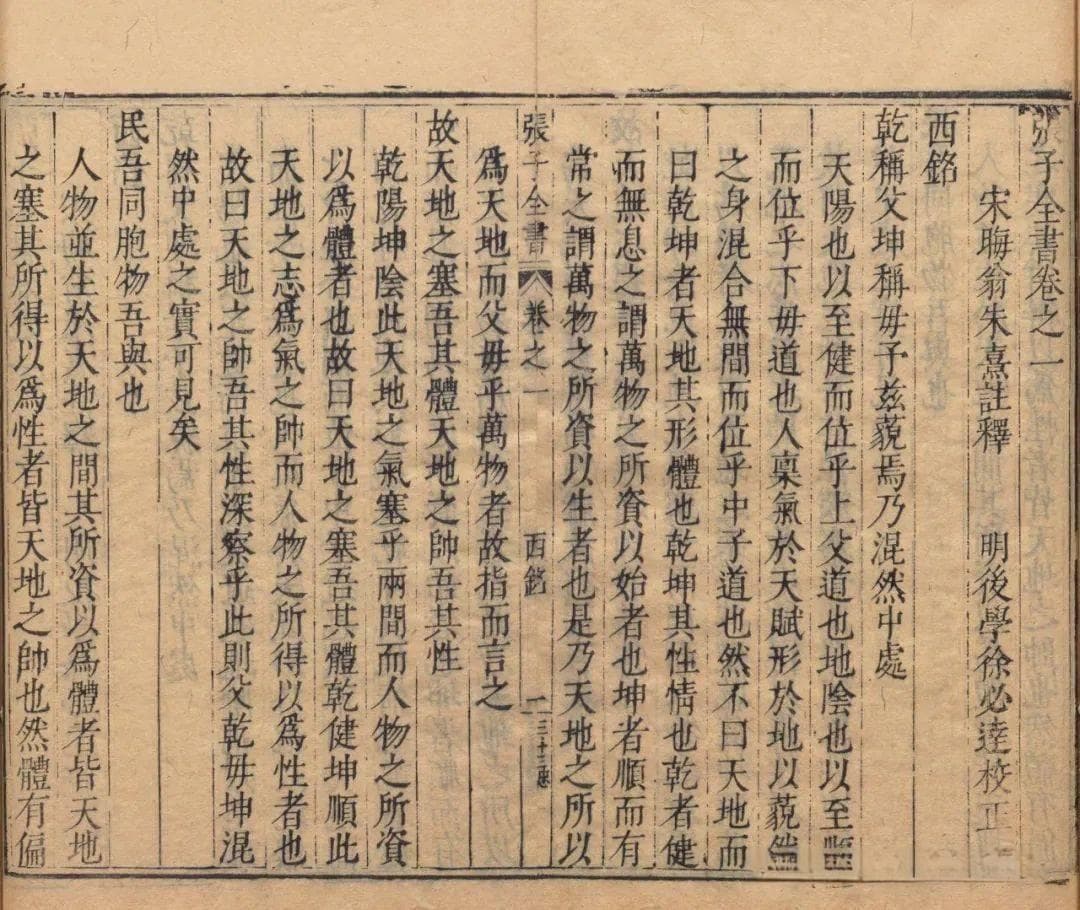 張子全書卷之一
宋晦翁朱熹註釋 明後學徐必達校正
西銘
乾稱父坤稱毋予茲藐焉乃混然中處
天陽也以至健而位乎上父道也地陰也以至
而位乎下毋道也人稟氣於天賦形於地以藐
之身混合無間而位乎中子道也然不曰天地而
曰乾坤者天地其形體也乾坤其性情也乾者健
而無息之謂萬物之所資以始者也坤者順而有
常之謂萬物之所資以生者也是乃天地之所以
張子全書 卷之一 西銘 一
爲天地而父毋乎萬物者故指而言之
故天地之塞吾其體天地之帥吾其性
乾陽坤陰此天地之氣塞乎兩間而人物之所資
以爲體者也故曰天地之塞吾其體乾健坤順此
天地之志爲氣之帥而人物之所得以爲性者也
故曰天地之帥吾其性深察乎此則父乾毋坤混
然中處之實可見矣
民吾同胞物吾與也
人物並生於天地之間其所資以爲體者皆天地
之塞其所得以爲性者皆天地之帥也然體有偏